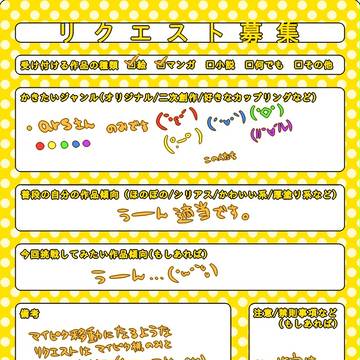 リクエスト募集
受け付ける作品の種類 ☑絵 ☑マンガ □小説 □何でも □その他
かきたいジャンル(オリジナル/二次創作/好きなカップリングなど)
のみです
普段の自分の作品傾向(ほのぼの/シリアス/かわいい系/厚塗り系など)
うーん適当です。
今回挑戦してみたい作品傾向(もしあれば)
うーん…
備考
マイピク移動になるような
リクエストは マイピク様のみと
注意/禁則事項など
(もしあれば)